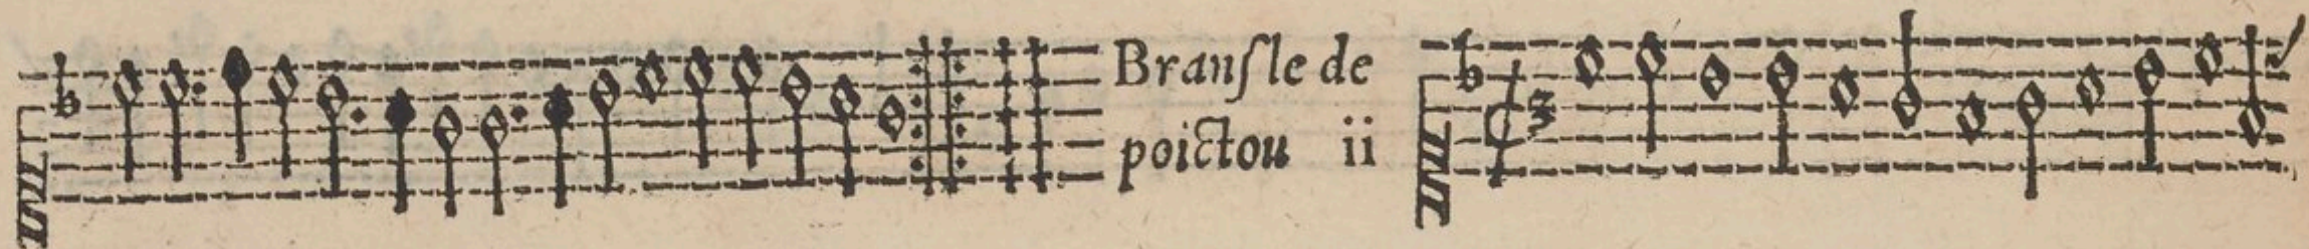 Branſle de
poictou ii